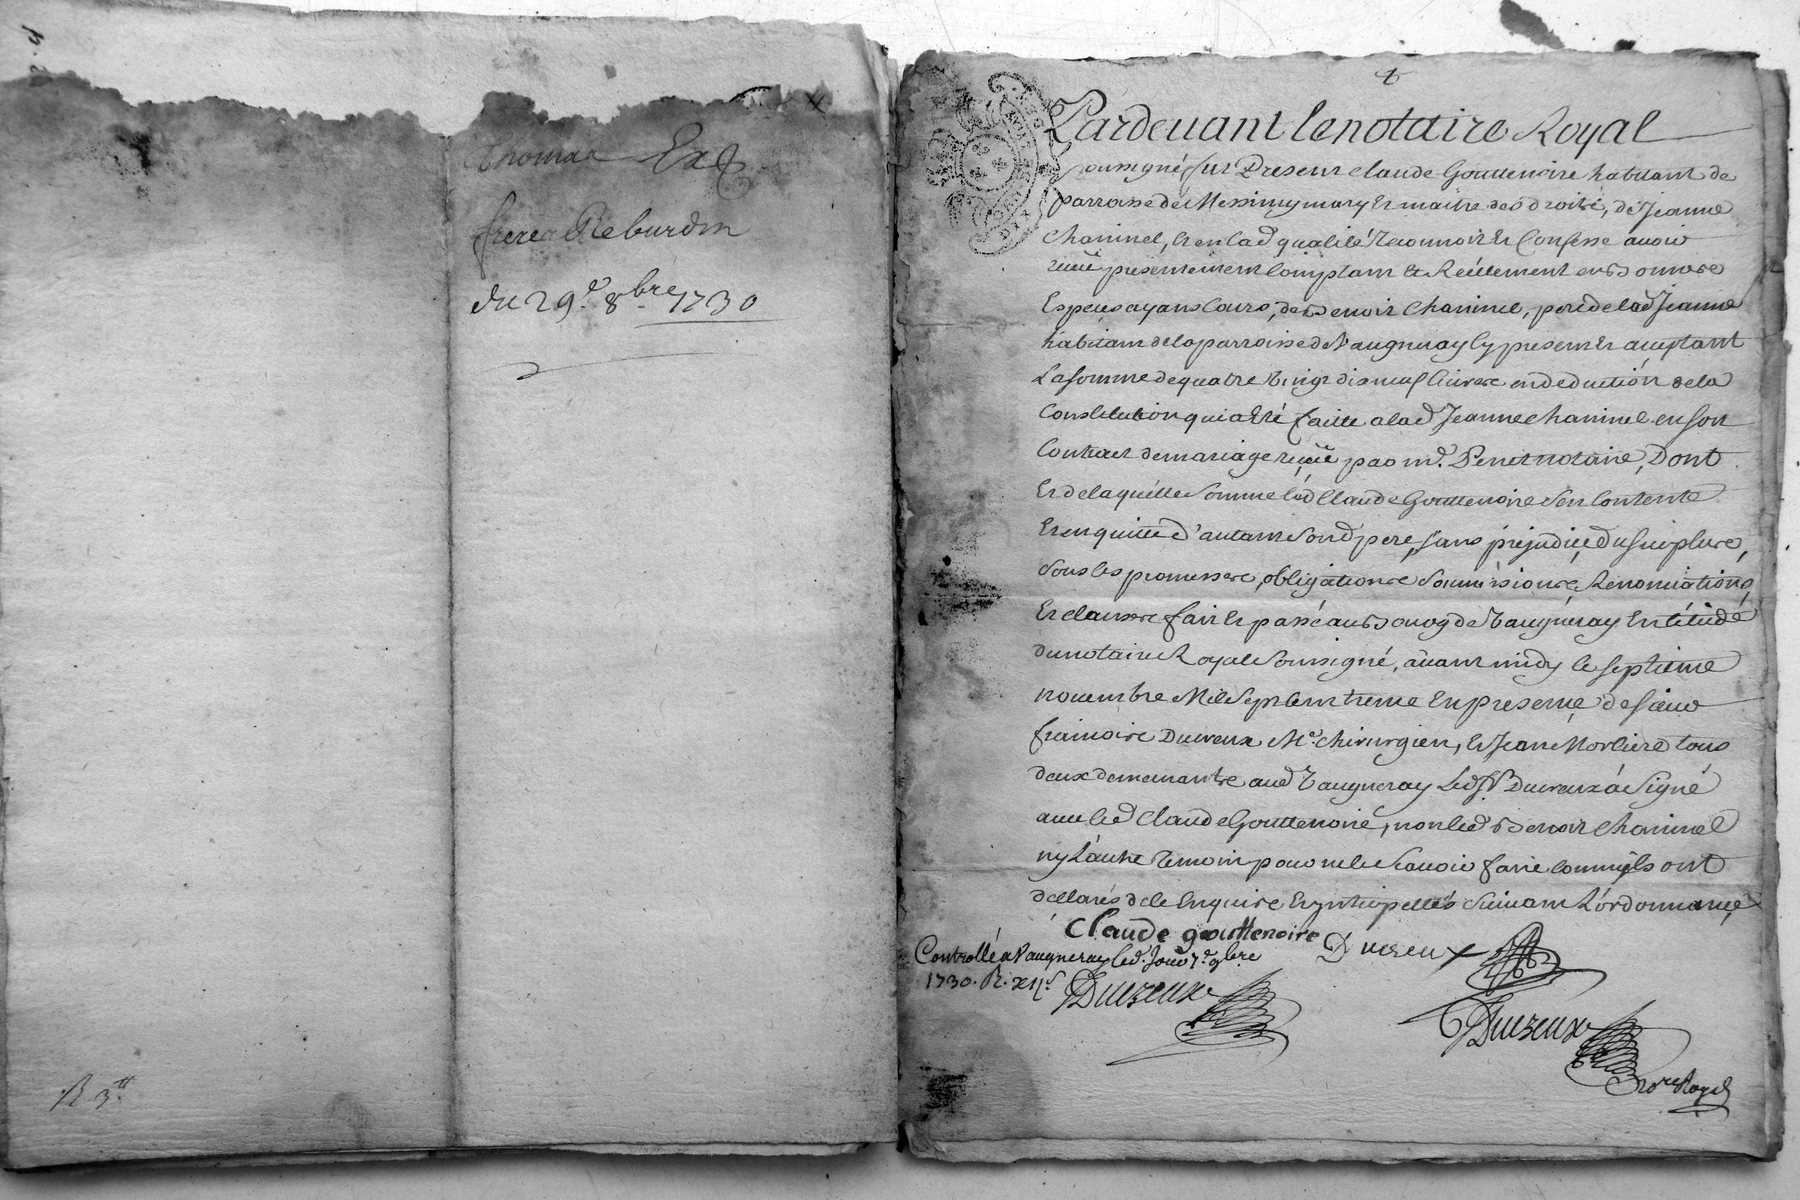 Thomas Ex
freres Reburdin
du 29.e 8.bre 1730
R 3.tt
Pardevant le notaire Royal
soussigné fut Present Claude Gouttenoire habitant de
parroisse de Messimy mary et maitre des droits, de Jeanne
Chaninel, et en lad qualité Reconnoit et Confesse avoir
receu presentement Comptant et Réellement en bonnes
Especes ayant Cours, de Benoit Chaninel, pere de lad Jeanne
habitant de la parroisse de Vaugneray Cy present et acceptant
La somme de quatre vingt dix neuf livres en deduction de la
Constitution qui a été faitte a lad Jeanne Chaninel en son
Contract de mariage receu par m.e Penet notaire, Dont
Et de laquelle somme led Claude Gouttenoire s'en Contente
Et en quitte d'autant sond pere, sans prejudice du surplus,
sous les promesses, obligations soumissions, Renonciations,
Et clauses fait et passé au Bourg de Vaugneray En l'étude
du notaire Royal soussigné, avant midy le septieme
novembre Mil Sept Cent trente En presence de sieur
francoise Ducreux M.e Chirurgien, et Jean Morliere tous
deux demeurants aud Vaugneray Led sr Ducreux a signé
avec led Claude Gouttenoire, non led Benoit Chaninel
ny L'autre temoin pour ne le Scavoir faire comme ils ont
dellarés de ce Enquise et ynterpellés suivant L'ordonnance
Claude gouttenoire Ducreux
Controllé a Vaugneray led. Jour 7.e 9bre
1730. R. xii s
Ducreux
Ducreux
No.re Royal